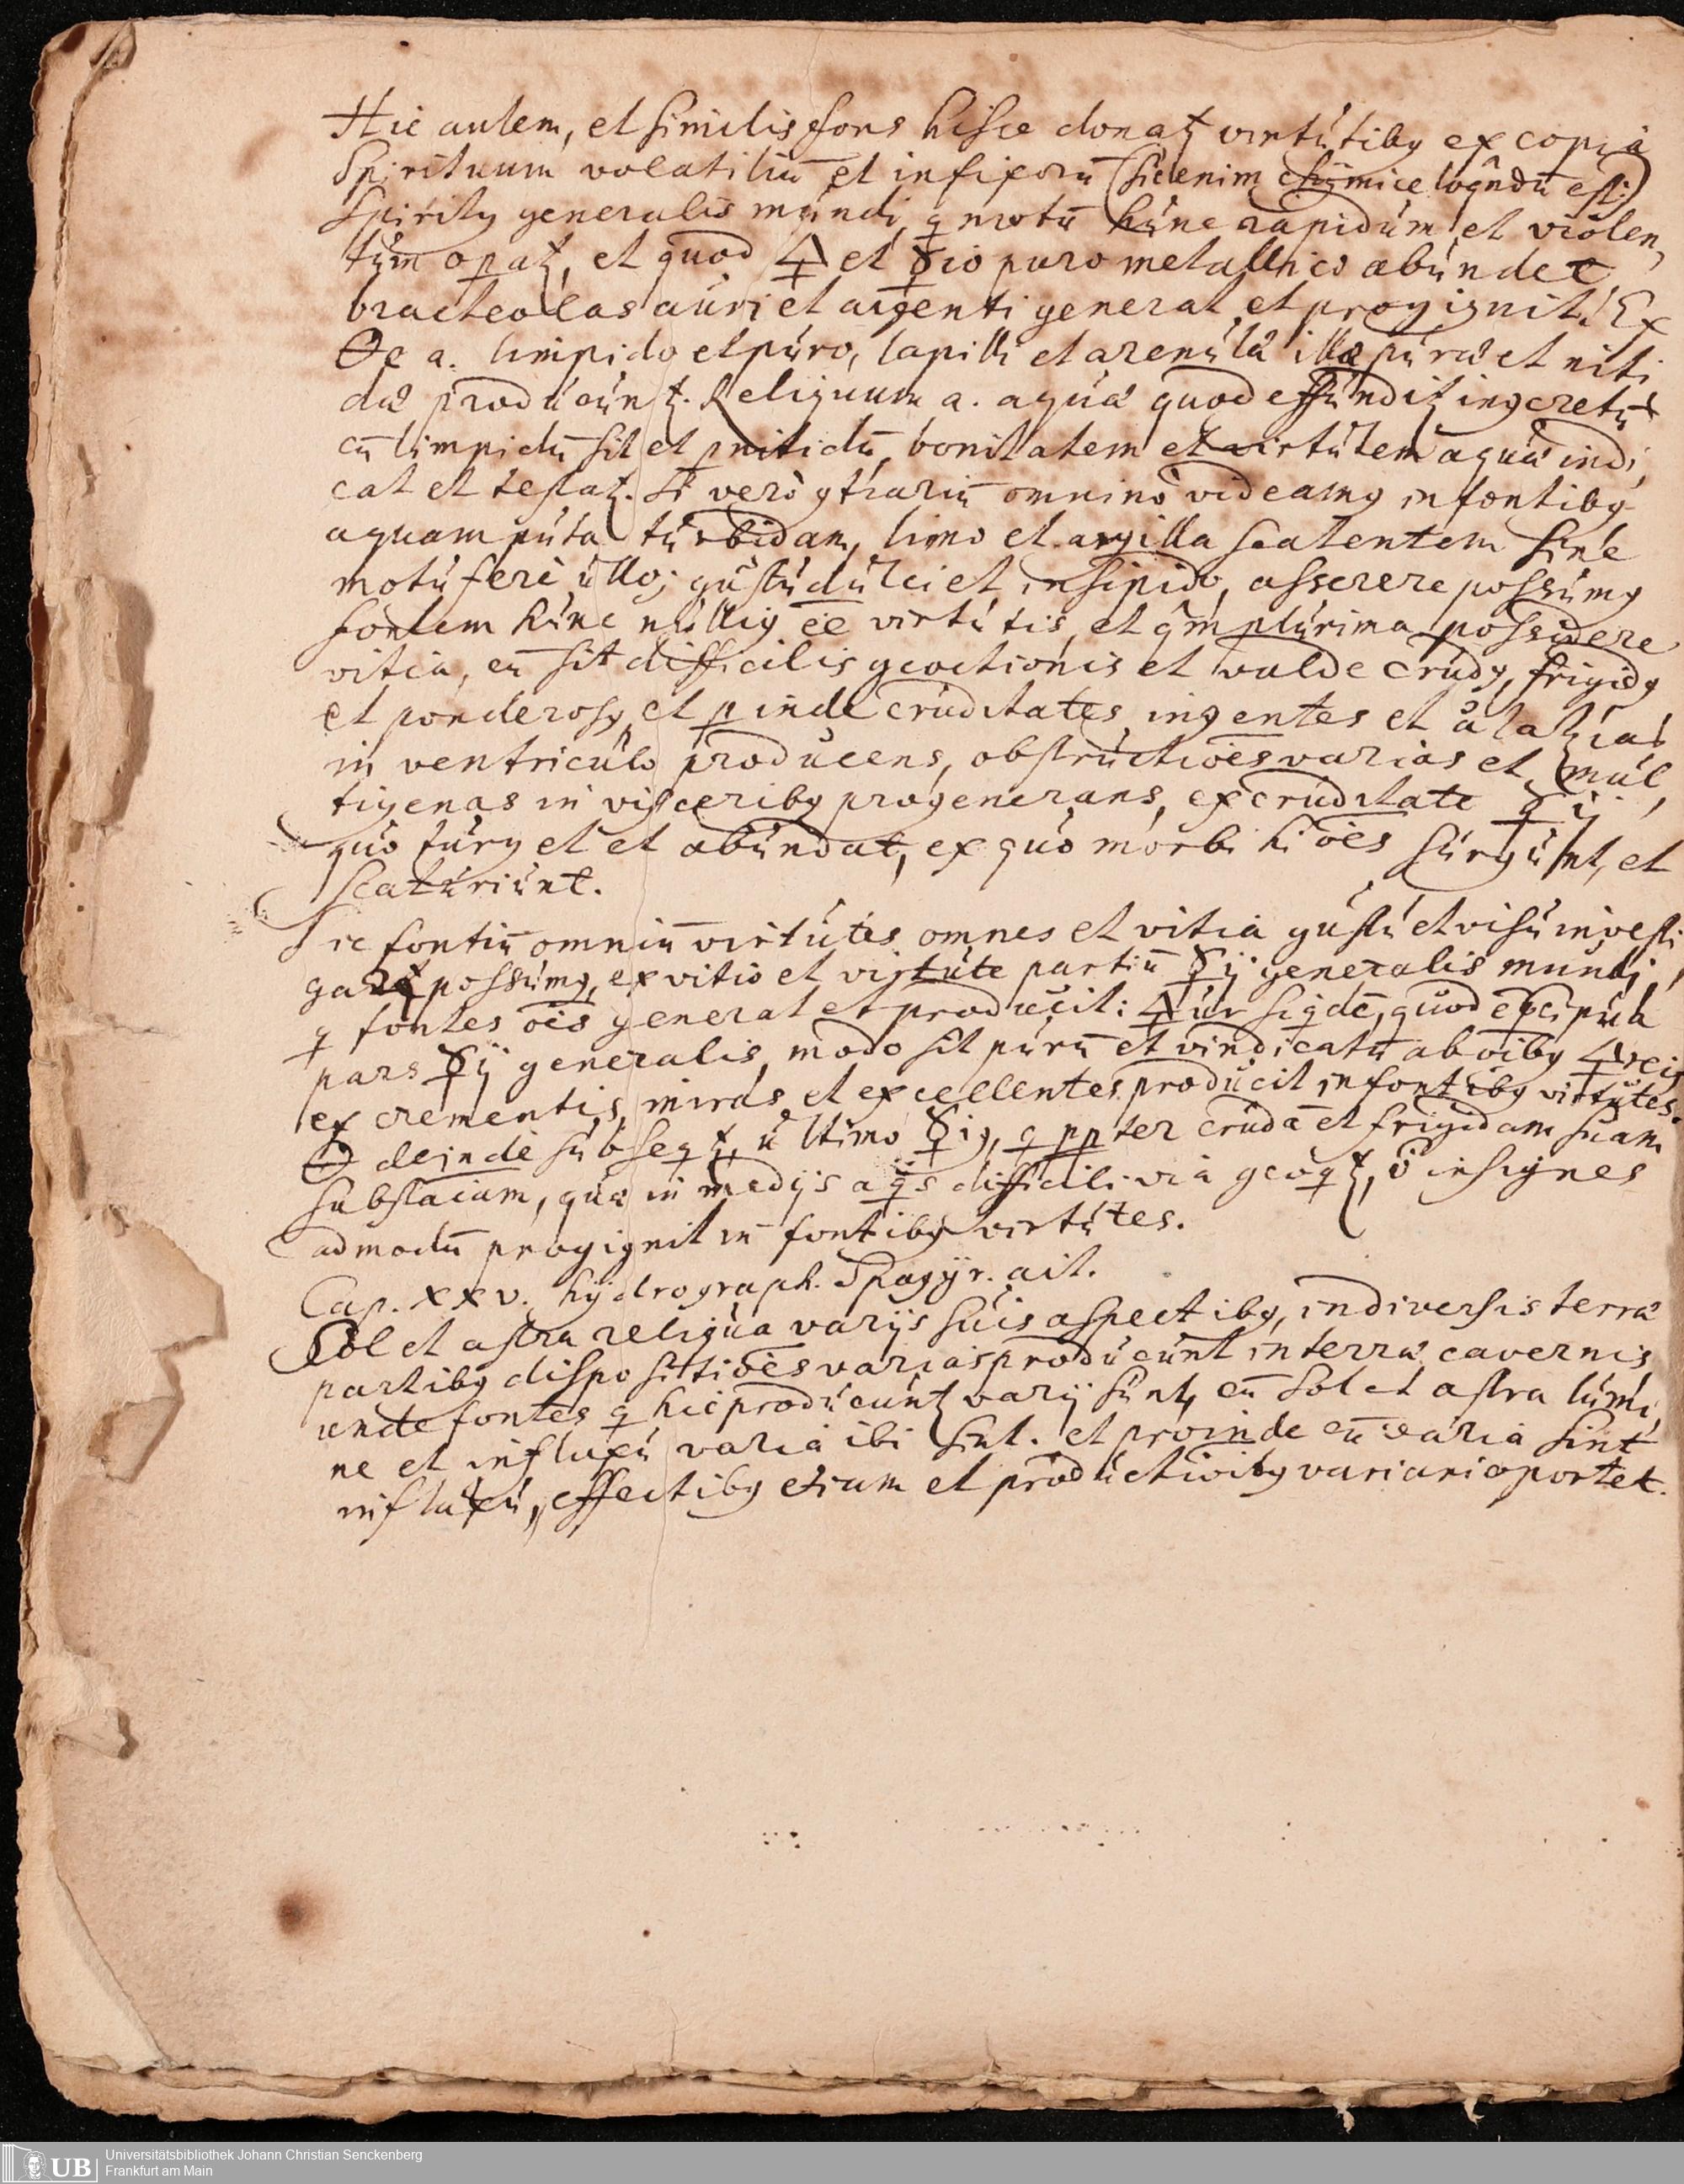 Hic autem, et similis fons hisce donatꝫ virtutibꝰ ex copia
Spirituum volatiliū et infixorū (sic enim chÿmice loqūdū est:)
Spiritꝰ generalis mundi, q motū hunc rapidum et violen,
tum opatꝫ, et quod 🜍 et ☿io puro metallico abundet
bracteolas auri et argenti generat et progignit. Ex
🜔e a. limpido et puro, lapilli et arenulæ illæ puræ et niti
dæ producuntꝫ. Reliquum a. aquæ quod effunditꝫ ingretū
cū limpidū sit et nitidū, bonitatem et virtutem aquæ indi,
cat et testatꝫ. Si vero ꝯtrariū omnino videamꝰ in fontibꝰ
aquam puta turbidam, limo et argilla scatentem sine
motu fere ullo; gustu dulci et insipido, asserere possumꝰ
fontem hunc nulliꝰ ēē virtutis, et qm plurima possidere
vitia, cū sit difficilis ꝯcoctionis et valde crudꝰ, frigidꝰ
et ponderosꝰ, et pinde cruditates ingentes et
in ventriculo producens, obstructiōēs varias et mul,
tigenas in visceribꝰ progenerans, ex cruditate ☿ij
quo turget et abundat, ex quo morbi hi ōēs surgunt, et
scaturiunt.
Sic fontiū omniū virtutes omnes et vitia gustu et visu investi,
gare possumꝰ, ex vitio et virtute partiū ☿ij generalis mundi,
q fontes ōēs generat et producit: 🜍ur siqdē, quod ē pcipua
pars ☿ij generalis, modo sit purū et vindicatū ab oībꝰ 🜍reis
excrementis, miras et excellentes producit in fontibꝰ virtutes.
🜔 deinde subseqtꝫ, ultimo ☿iꝰ, q ppter crudā et frigidam suam
substaiam, quæ in medijs aqs difficili via ꝯcoqtꝫ, ō insignes
admodū progignit in fontibꝰ virtutes.
Cap. XXV. hÿdrograph. Spagÿr. ait.
Sol et astra reliqua varijs suis aspectibꝰ, in diversis terræ
partibꝰ dispositiōēs varias producunt in terræ cavernis
unde fontes q hic producuntꝫ varij sunt, cū sol et astra lumi,
ne et influxu varia ibi sint. et proinde cū varia sint
influxu, effectibꝰ etiam et productioibꝰ variari oportet.
Universitätsbibliothek Johann Christian Senckenberg
Frankfurt am Main
UB